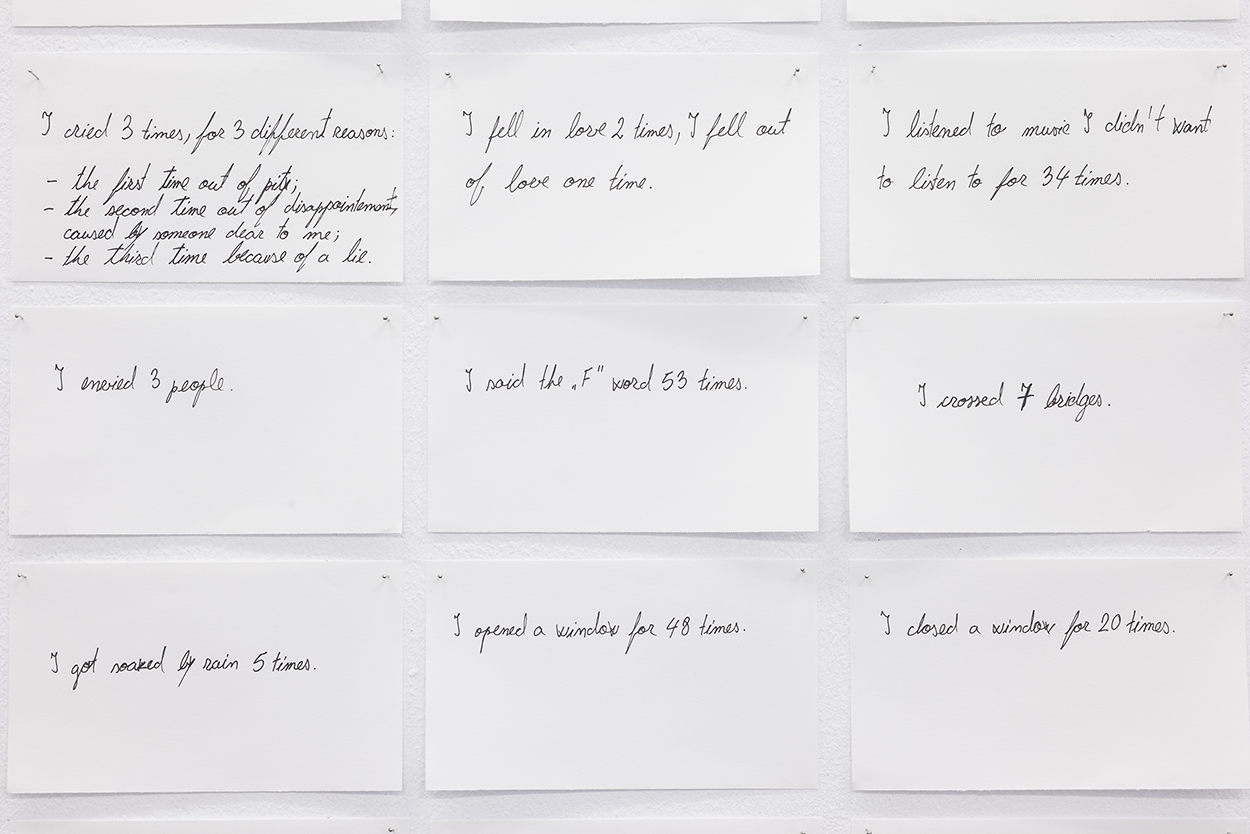 I cried 3 times, for 3 different reasons:
- the first time out of pity;
- the second time out of disappointement,
caused by someone dear to me;
- the third time because of a lie.
I fell in love 2 times, I fell out
of love one time.
I listened to music I didn't want
to listen to for 34 times.
I envied 3 people.
I said the „F" word 53 times.
I crossed 7 bridges.
I got soaked by rain 5 times.
I opened a window for 48 times.
I closed a window for 20 times.